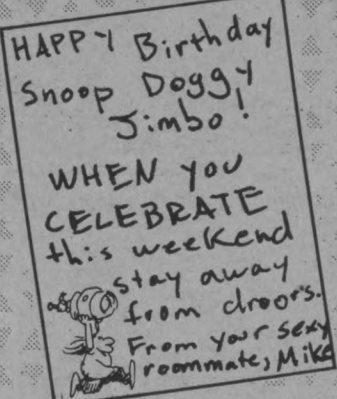 HAPPY Birthday
Snoop Doggy
Jimbo!
WHEN you
CELEBRATE
this weekend
stay away
from droor's.
From your sexy
roommate, Mike